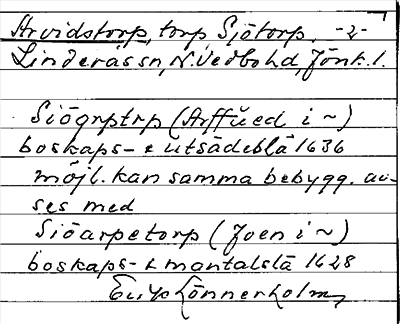 Arvidstorp, torp Sjötorp. -2-
Linderås sn, N. Vedbo hd, Jönk. l.
Siögrptrp (Arffŭed i ~)
boskaps- & utsädeslä 1636
möjl. kan samma bebygg. av-
ses med
Siöarpetorp (Joen i ~)
boskaps- & mantalslä 1628
Lönnerholm